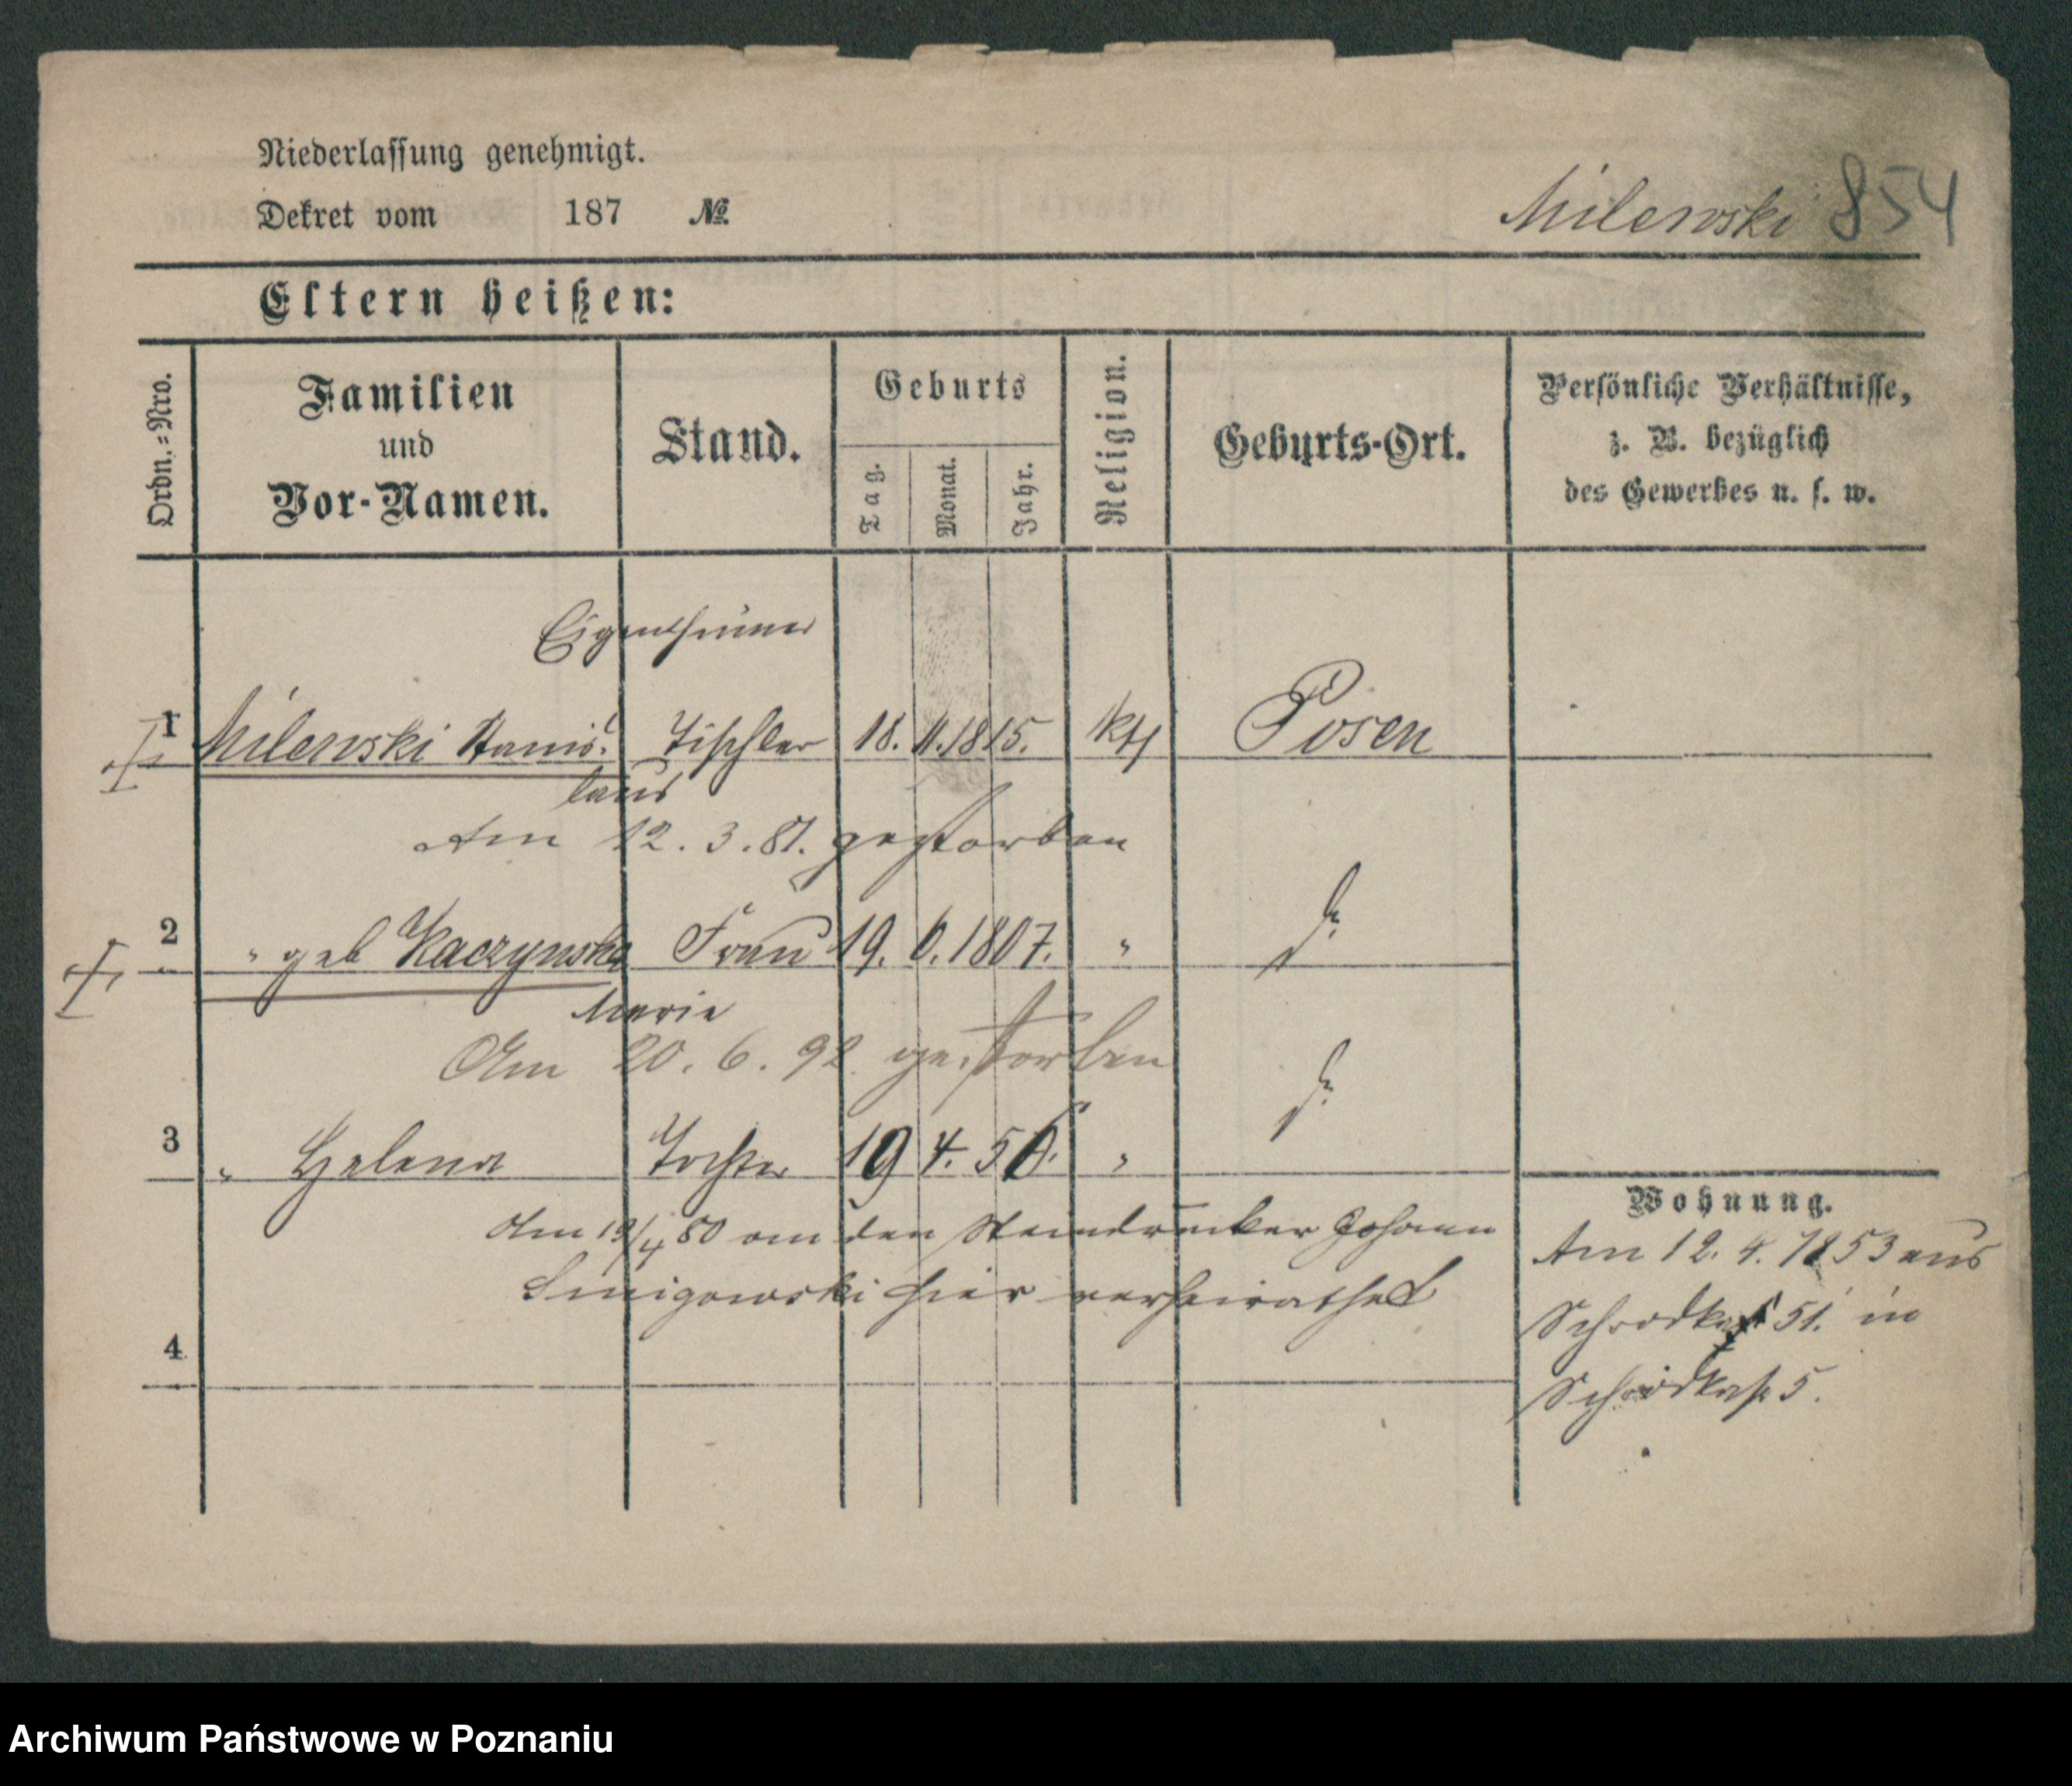 Niederlassung genehmigt.
Dekret vom 187 №
Milewski 854
Eltern heißen:
Ordn.=Nro.
Familien
und
Vor-Namen.
Stand.
Geburts
Tag.
Monat.
Jahr.
Religion.
Geburts-Ort.
Persönliche Verhältnisse,
z. B. bezüglich
des Gewerbes u. s. w.
Eigenthümer
1 Milewski Stanis- Tischler 18. 11. 1815. kth Posen
laus
Am 12. 3. 81. gestorben
2 " geb Kaczynska Frau 19. 6. 1807. " do
Marie
Am 20. 6. 92. gestorben
3 " Helena Tochter 19 4. 56. " do
Am 19/4 80 an den Steindrucker Johann
hier verheirathet
4
Wohnung.
Am 12. 4. 1853 aus
Schrodka 51. in
Schrodka 5.
Archiwum Państwowe w Poznaniu